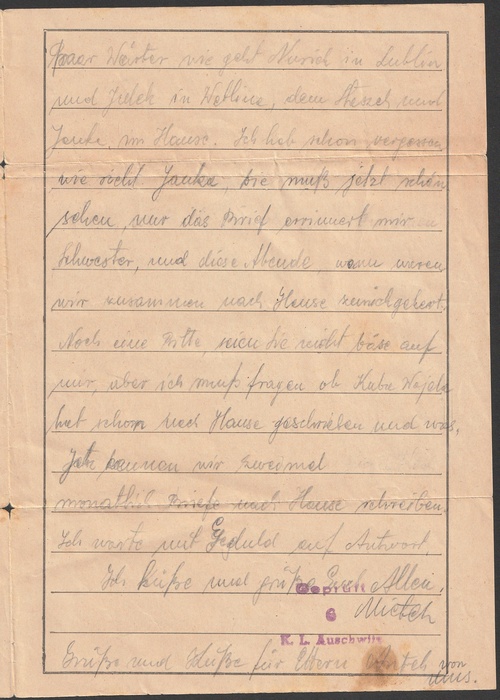 paar Wörter wie geht in Lublin
und Julek in dem und
Janka, im Hause. Ich hab schon vergessen
wie sieht Janka, sie muß jetzt schön
sehen, nur das Brief erinnert mir
Schwester, und diese Abende, wann waren
wir zusammen nach Hause zurückgekert.
Noch eine Bitte, seien Sie nicht böse auf
mir, aber ich muß fragen ob Kuba
hat schon nach Hause geschrieben und was.
Jetz kannen wir zweimal
monatlich Briefe nach Hause schreiben.
Ich warte mit Geduld auf Antwort.
Ich küße und grüße Euch Allen.
Mietek
Geprüft
6
K. L. Auschwitz
Grüße und Küße für Eltern von
uns.